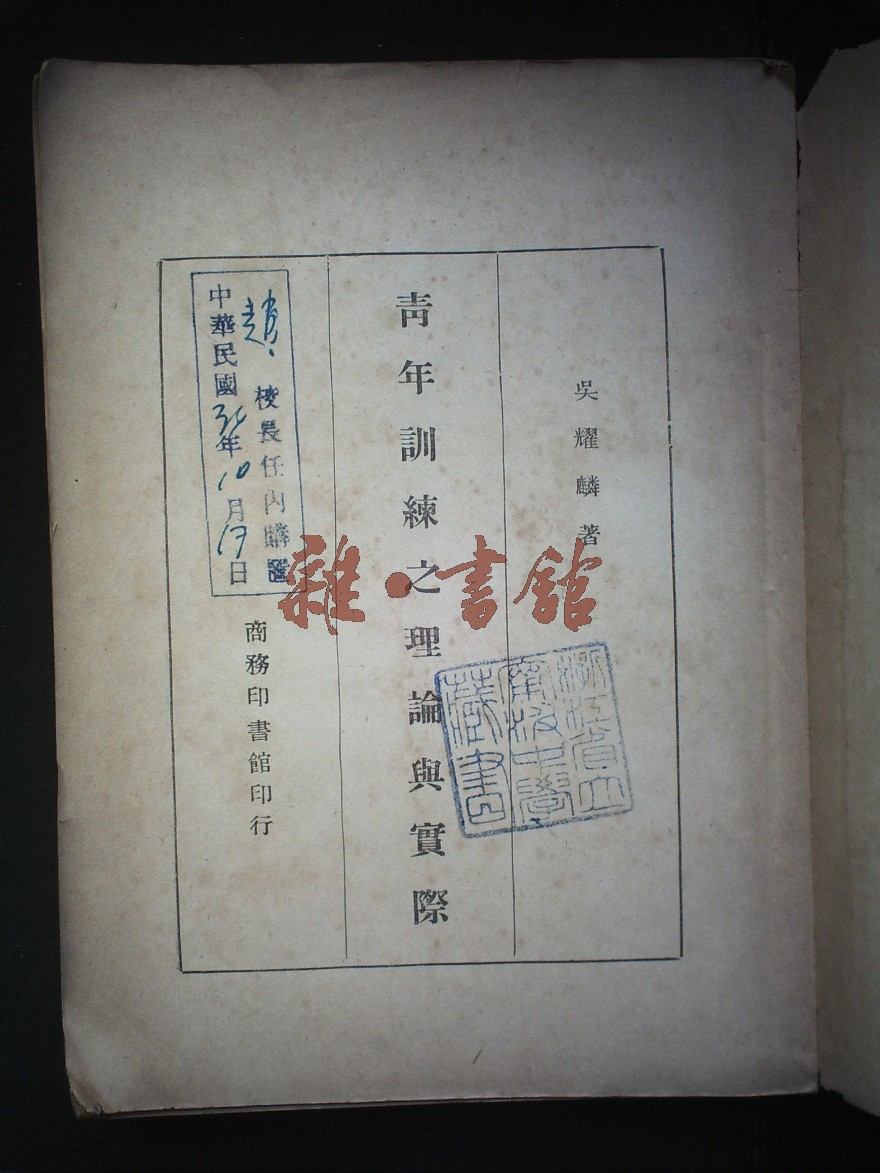 吳耀麟著
青年訓練之理論與實際
商務印書館印行
趙 校長任內購
中華民國 年10月 日
浙江省立
中學
藏書
雜·書館